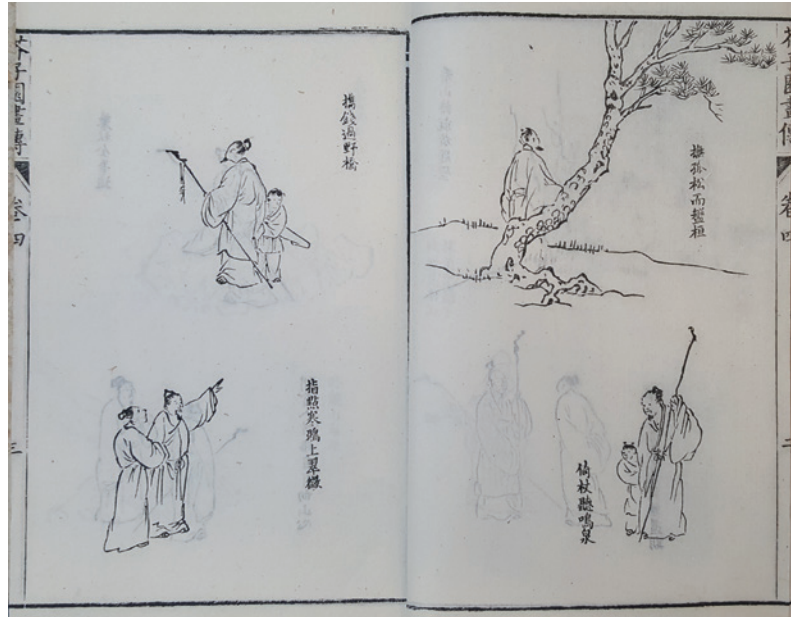 芥子園畫傳
卷四
二
撫孤松而盤桓
倚杖聽鳴泉
芥子園畫傳
卷四
三
攜錢過野橋
指點寒鴉上翠微